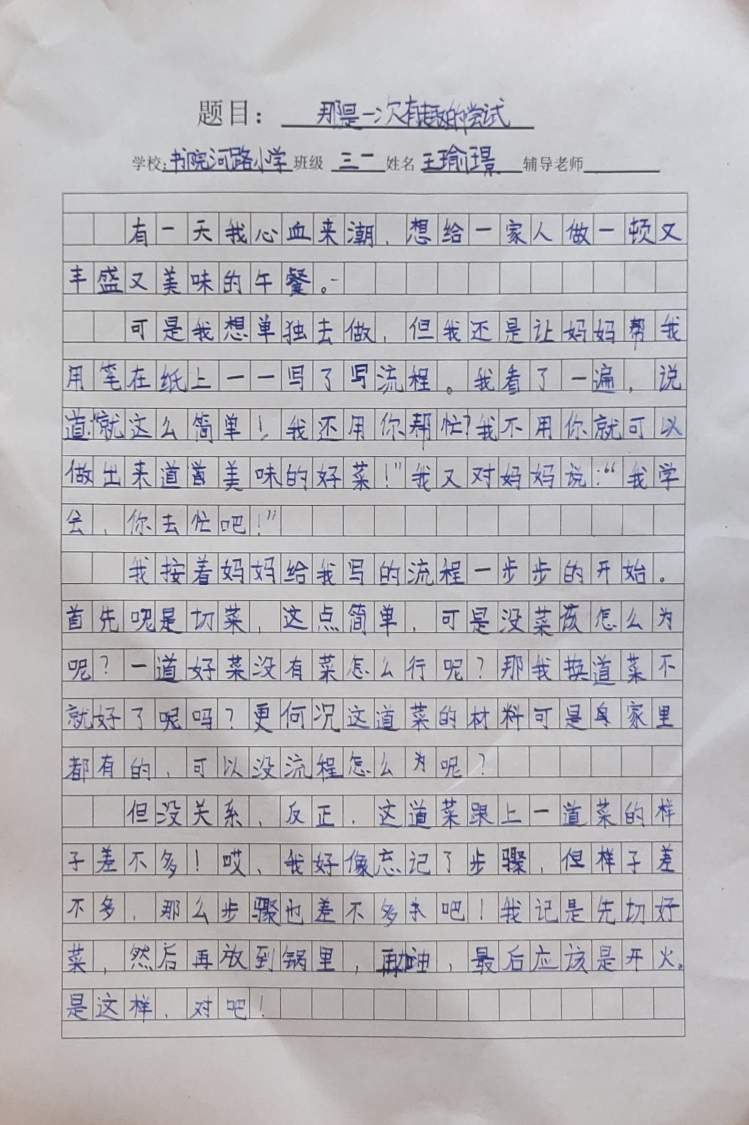 题目：那是一次有趣的尝试
学校：书院河路小学班级 三一 姓名 王瑜璟 辅导老师
有一天我心血来潮，想给一家人做一顿又
丰盛又美味的午餐。
可是我想单独去做，但我还是让妈妈帮我
用笔在纸上一一写了写流程。我看了一遍，说
道：“就这么简单！我还用你帮忙？我不用你就可以
做出来道美味的好菜！”我又对妈妈说：“我学
会，你去忙吧！”
我按着妈妈给我写的流程一步步的开始。
首先呢是切菜，这点简单，可是没菜该怎么为
呢？一道好菜没有菜怎么行呢？那我换道菜不
就好了呢吗？更何况这道菜的材料可是家里
都有的，可以没流程怎么为呢？
但没关系，反正，这道菜跟上一道菜的样
子差不多！哎，我好像忘记了步骤，但样子差
不多，那么步骤也差不多吧！我记是先切好
菜，然后再放到锅里，再加油，最后应该是开火。
是这样，对吧！